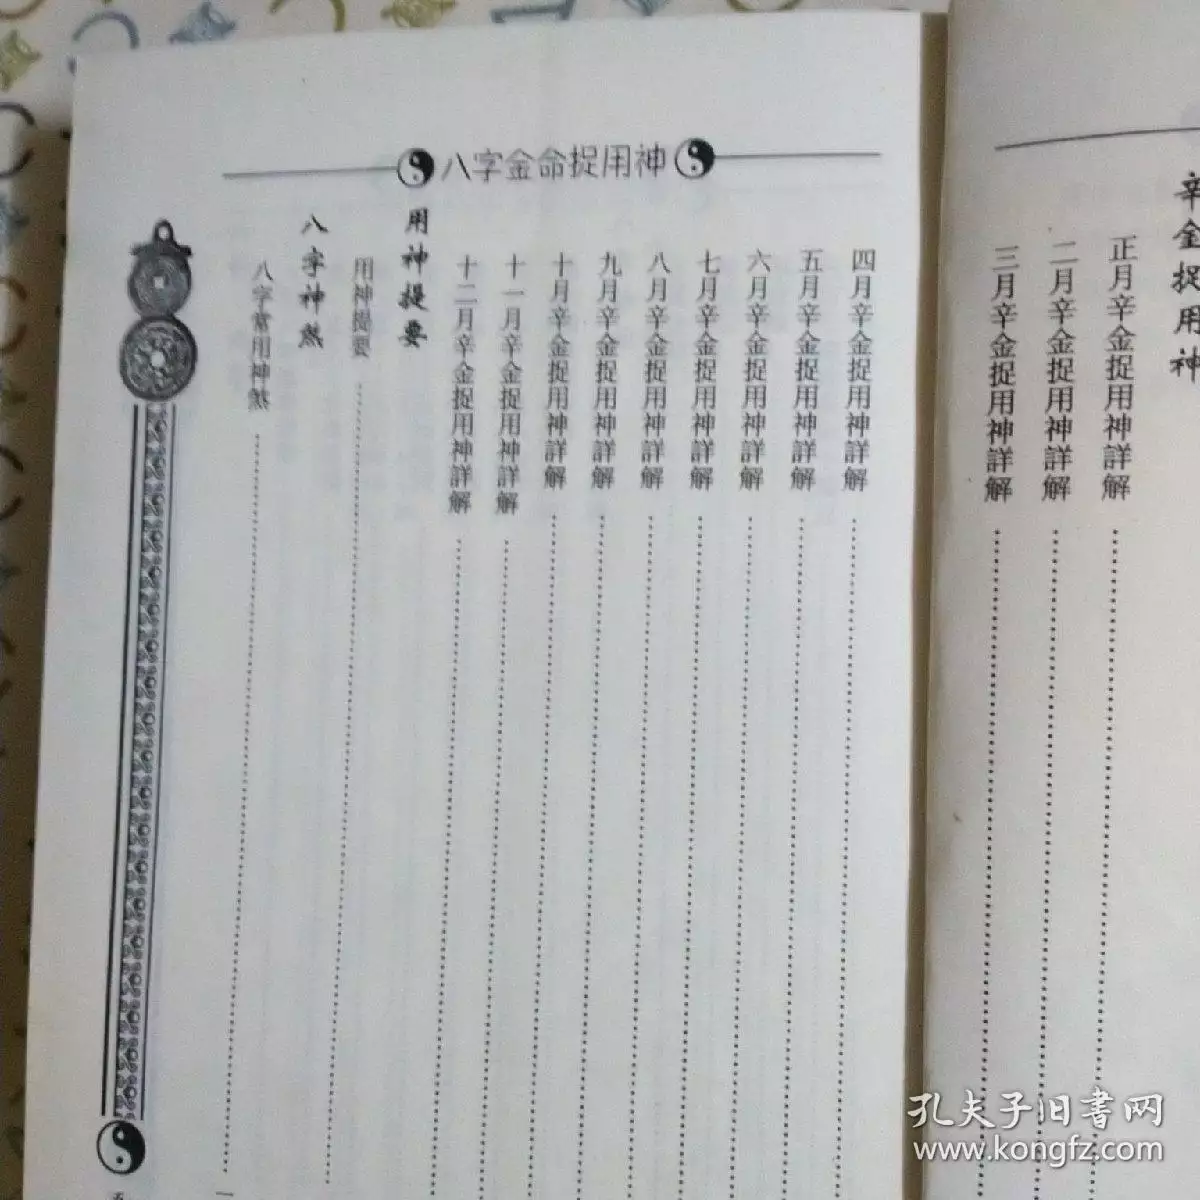 辛金捉用神
正月辛金捉用神詳解
二月辛金捉用神詳解
三月辛金捉用神詳解
八字金命捉用神
四月辛金捉用神詳解
五月辛金捉用神詳解
六月辛金捉用神詳解
七月辛金捉用神詳解
八月辛金捉用神詳解
九月辛金捉用神詳解
十月辛金捉用神詳解
十一月辛金捉用神詳解
十二月辛金捉用神詳解
用神提要
用神提要
八字神煞
八字常用神煞
孔夫子旧書网
www.kongfz.com